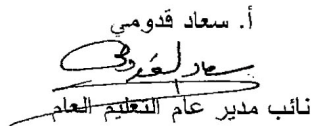 أ. سعاد قدومي
سعاد قدومي
نائب مدير عام التعليم العام